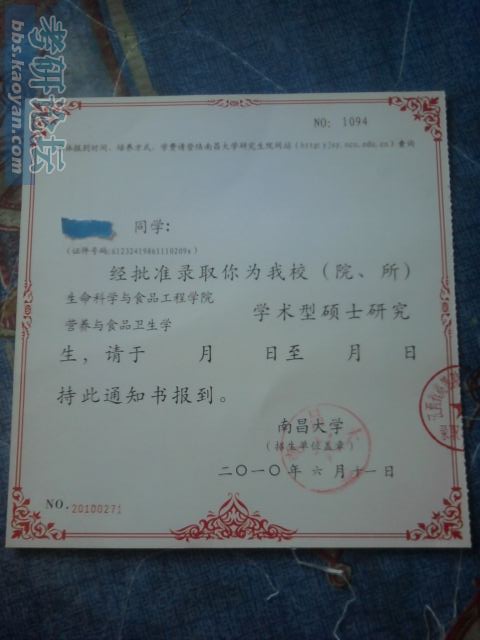 考研论坛
bbs.kaoyan.com
NO: 1094
体报到时间、培养方式、学费请登陆南昌大学研究生院网站(http:yjsy.ncu.edu.cn)查询
同学:
(证件号码:61232419861110209x)
经批准录取你为我校(院、所)
生命科学与食品工程学院
营养与食品卫生学
学术型硕士研究
生,请于 月 日至 月 日
持此通知书报到。
南昌大学
(招生单位盖章)
二〇一〇年六月十一日
NO.20100271